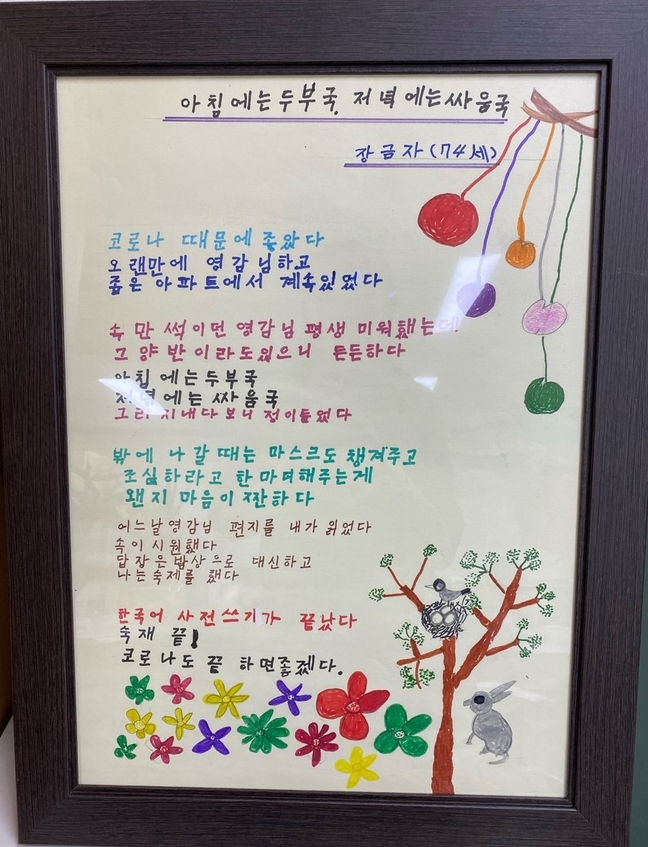 아침에는두부국, 저녁에는싸움국
장금자(74세)
코로나 때문에 좋았다
오랜만에 영감님하고
좁은 아파트에서 계속있었다
속만썩이던영감님 평생 미워했는데
그양반이라도있으니 든든하다
아침에는두부국
저녁에는싸움국
그리 지내다보니 정이들었다
밖에 나갈때는 마스크도 챙겨주고
조심하라고 한마뎌해주는게
왠지 마음이 짠하다
어느날영감님 편지를 내가 읽었다
속이 시원했다
답장은밥상으로 대신하고
나는숙제를 했다
한국어 사전쓰기가 끝났다
숙재 끝!
코로나도끝 하면좋겠다.